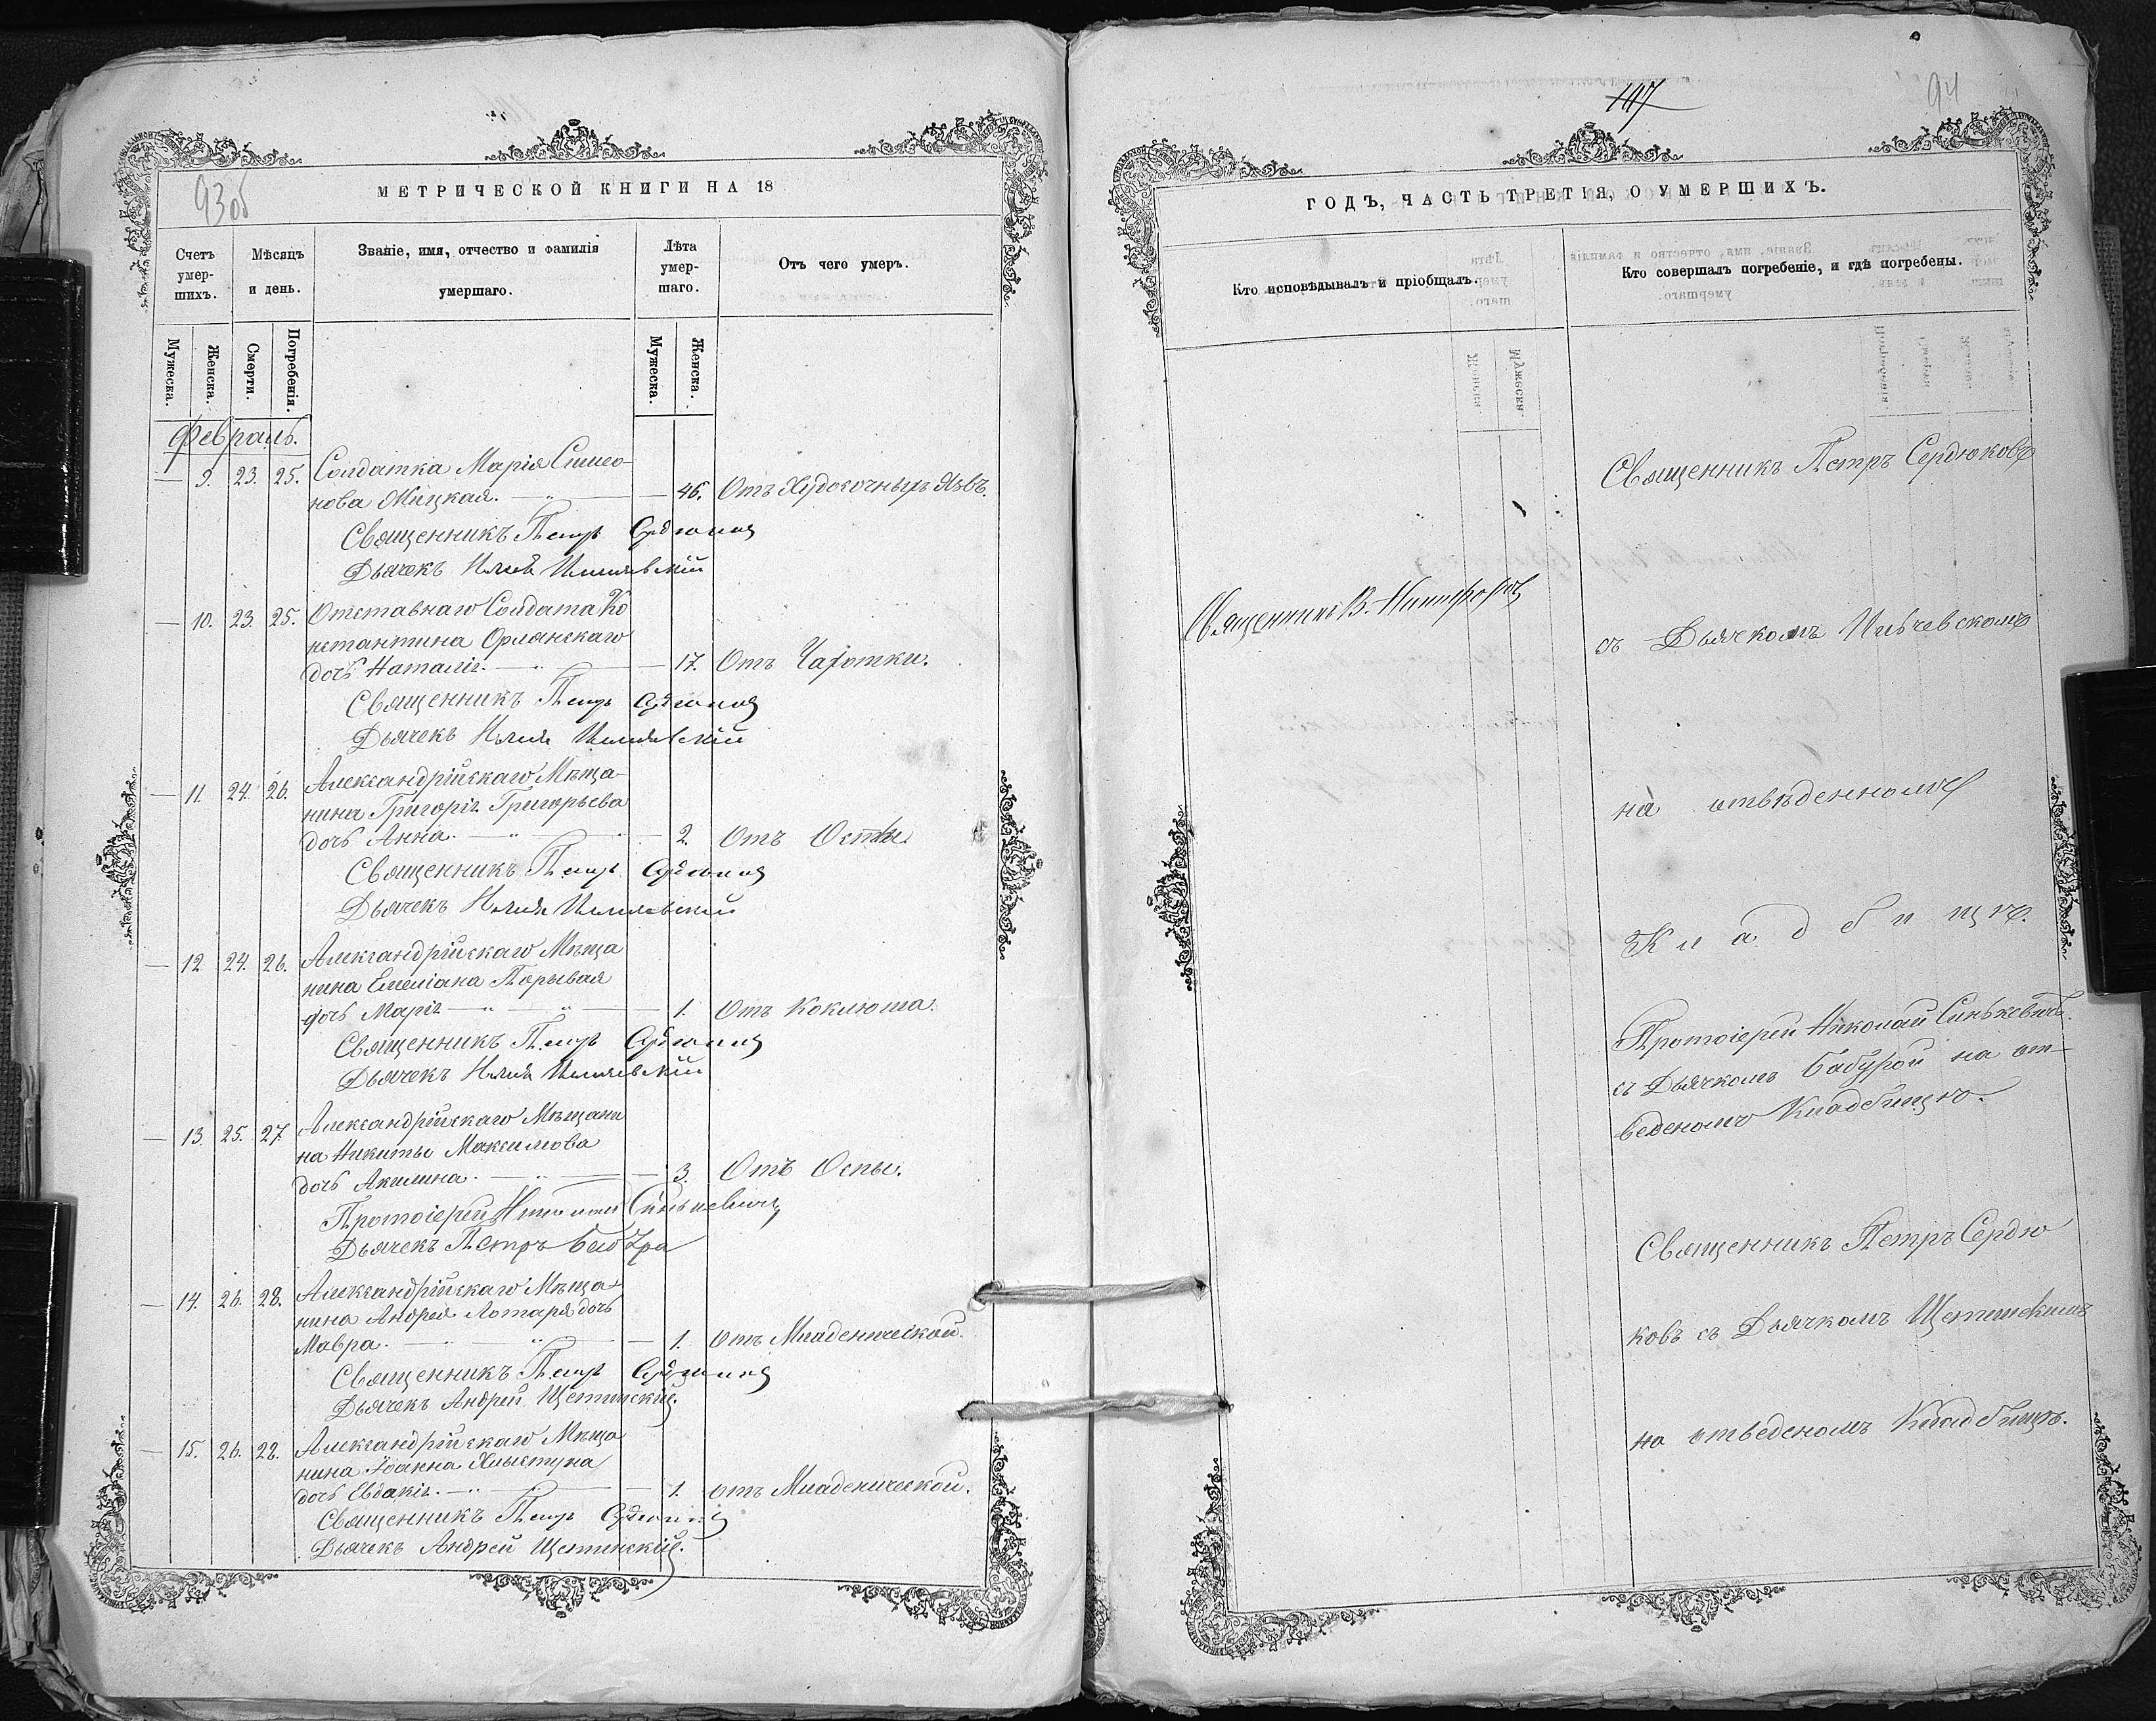 93об
МЕТРИЧЕСКОЙ КНИГИ НА 18
Счетъ умер-шихъ.
Мѣсяцъ и день.
Званіе, имя, отчество и фамилія умершаго.
Лѣта умер-шаго.
Отъ чего умеръ.
Мужеска. Женска. Смерти. Погребенія. Мужеска. Женска.
Февраль.
— 9. 23. 25. Солдатка Марія Симео-
нова — 46. Отъ
Священникъ Петръ Сердюковъ
Дьячекъ Илія
— 10. 23. 25. Отставнаго Солдата Ко
нстантина Орлянскаго
дочь Наталія. — 17. Отъ Чахотки.
Священникъ Петръ Сердюковъ
Дьячекъ Илія
— 11. 24. 26. Александрійскаго Мѣща-
нина Григорія Григорьева
дочь Анна. — 2. Отъ Оспы.
Священникъ Петръ Сердюковъ
Дьячекъ Илія
— 12. 24. 26. Александрійскаго Мѣща
нина Емеліана Порывая
дочь Марія — 1. Отъ Коклюша.
Священникъ Петръ Сердюковъ
Дьячекъ Илія
— 13. 25. 27. Александрійскаго Мѣщани
на Никиты Максимова
дочь Акилина. — 3. Отъ Оспы.
Протоіерей Николай Синькевичъ
Дьячекъ Петръ Бабура
— 14. 26. 28. Александрійскаго Мѣща
нина Андрея Лотаря дочь
Мавра. — 1. отъ Младенческой.
Священникъ Петръ Сердюковъ
Дьячекъ Андрей Щетинскій.
— 15. 26. 28. Александрійскаго Мѣща
нина Іоанна Хлыстуна
дочь Евдокія. — 1. отъ Младенческой.
Священникъ Петръ Сердюковъ
Дьячекъ Андрей Щетинскій.
147
94
ГОДЪ, ЧАСТЬ ТРЕТІЯ, О УМЕРШИХЪ.
Кто исповѣдывалъ и пріобщалъ.
Кто совершалъ погребеніе, и гдѣ погребены.
Священникъ Петръ Сердюковъ
Священникъ В. Никифоровъ
съ Дьячкомъ
на отвѣденномъ
Кладбищѣ.
Протоіерей Николай Синькевичъ
съ Дьячкомъ Бабурой на от-
веденомъ Кладбищѣ.
Священникъ Петръ Сердю
ковъ съ Дьячкомъ Щетинскимъ
на отведеномъ Кладбищѣ.